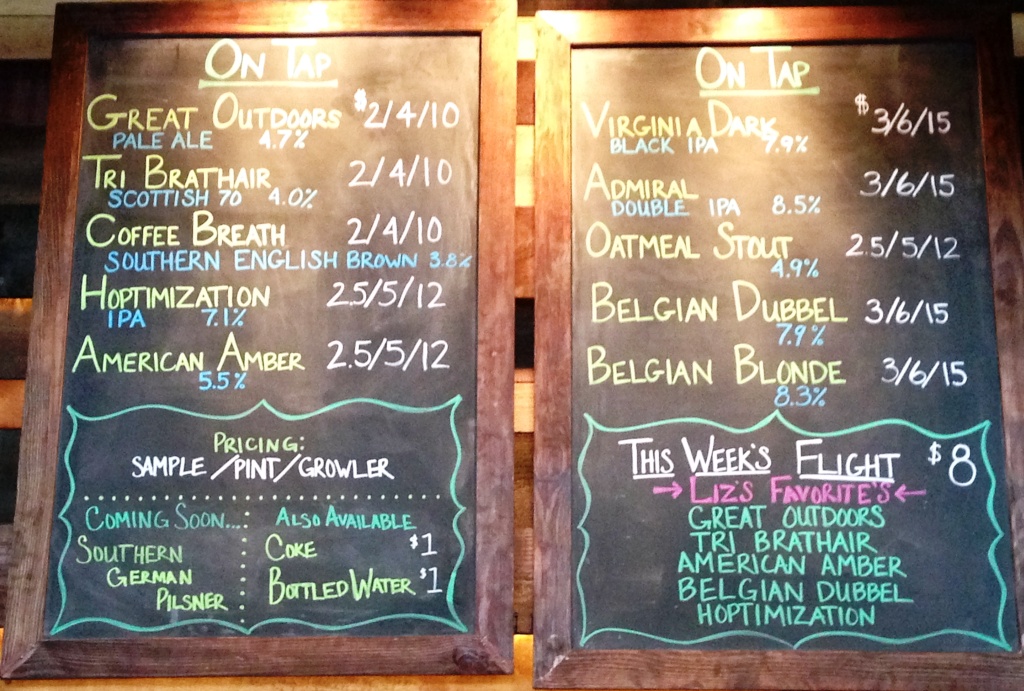 ON TAP
GREAT OUTDOORS $2/4/10
PALE ALE 4.7%
TRI BRATHAIR 2/4/10
SCOTTISH 70 4.0%
COFFEE BREATH 2/4/10
SOUTHERN ENGLISH BROWN 3.8%
HOPTIMIZATION 2.5/5/12
IPA 7.1%
AMERICAN AMBER 2.5/5/12
5.5%
PRICING:
SAMPLE/PINT/GROWLER
COMING SOON...:
SOUTHERN
GERMAN
PILSNER
ALSO AVAILABLE
COKE $1
BOTTLED WATER $1
ON TAP
VIRGINIA DARK $3/6/15
BLACK IPA 7.9%
ADMIRAL 3/6/15
DOUBLE IPA 8.5%
OATMEAL STOUT 2.5/5/12
4.9%
BELGIAN DUBBEL 3/6/15
7.9%
BELGIAN BLONDE 3/6/15
8.3%
THIS WEEK'S FLIGHT $8
→ LIZ'S FAVORITE'S ←
GREAT OUTDOORS
TRI BRATHAIR
AMERICAN AMBER
BELGIAN DUBBEL
HOPTIMIZATION